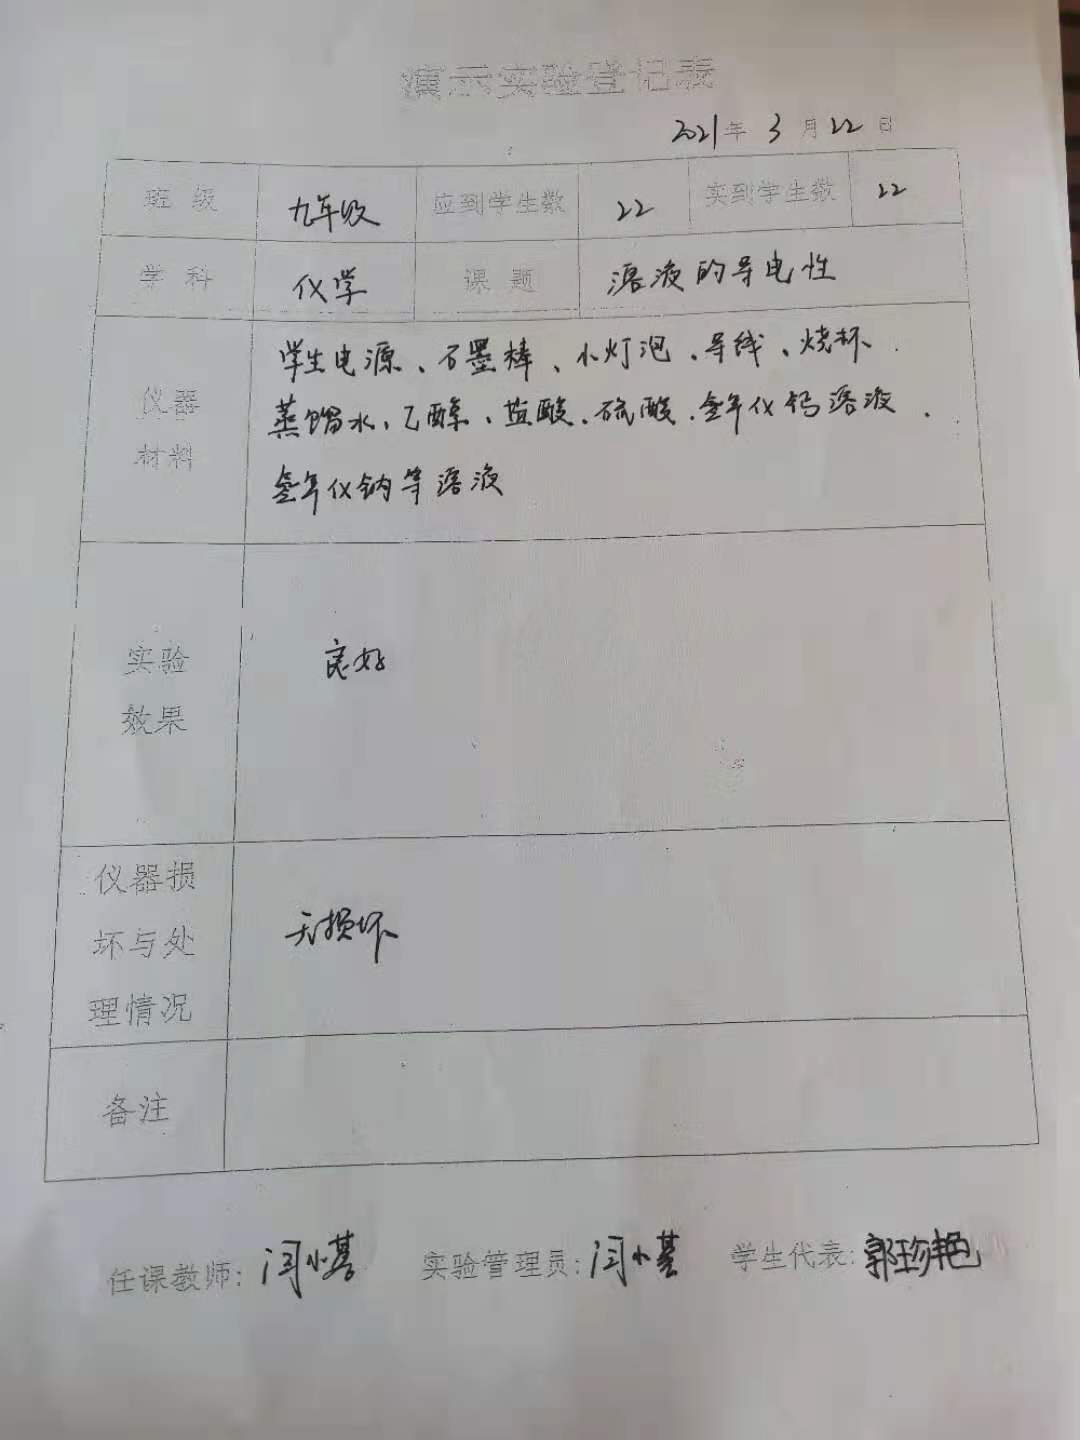 演示实验登记表
2021年 3 月 22 日
班 级 九年级 应到学生数 22 实到学生数 22
学 科 化学 课 题 溶液的导电性
仪器
材料
学生电源、石墨棒、小灯泡、导线、烧杯、
蒸馏水、乙醇、盐酸、硫酸、氢氧化钙溶液、
氢氧化钠等溶液
实验
效果
良好
仪器损
坏与处
理情况
无损坏
备注
任课教师: 闫小 实验管理员: 闫小 学生代表: 郭珍艳